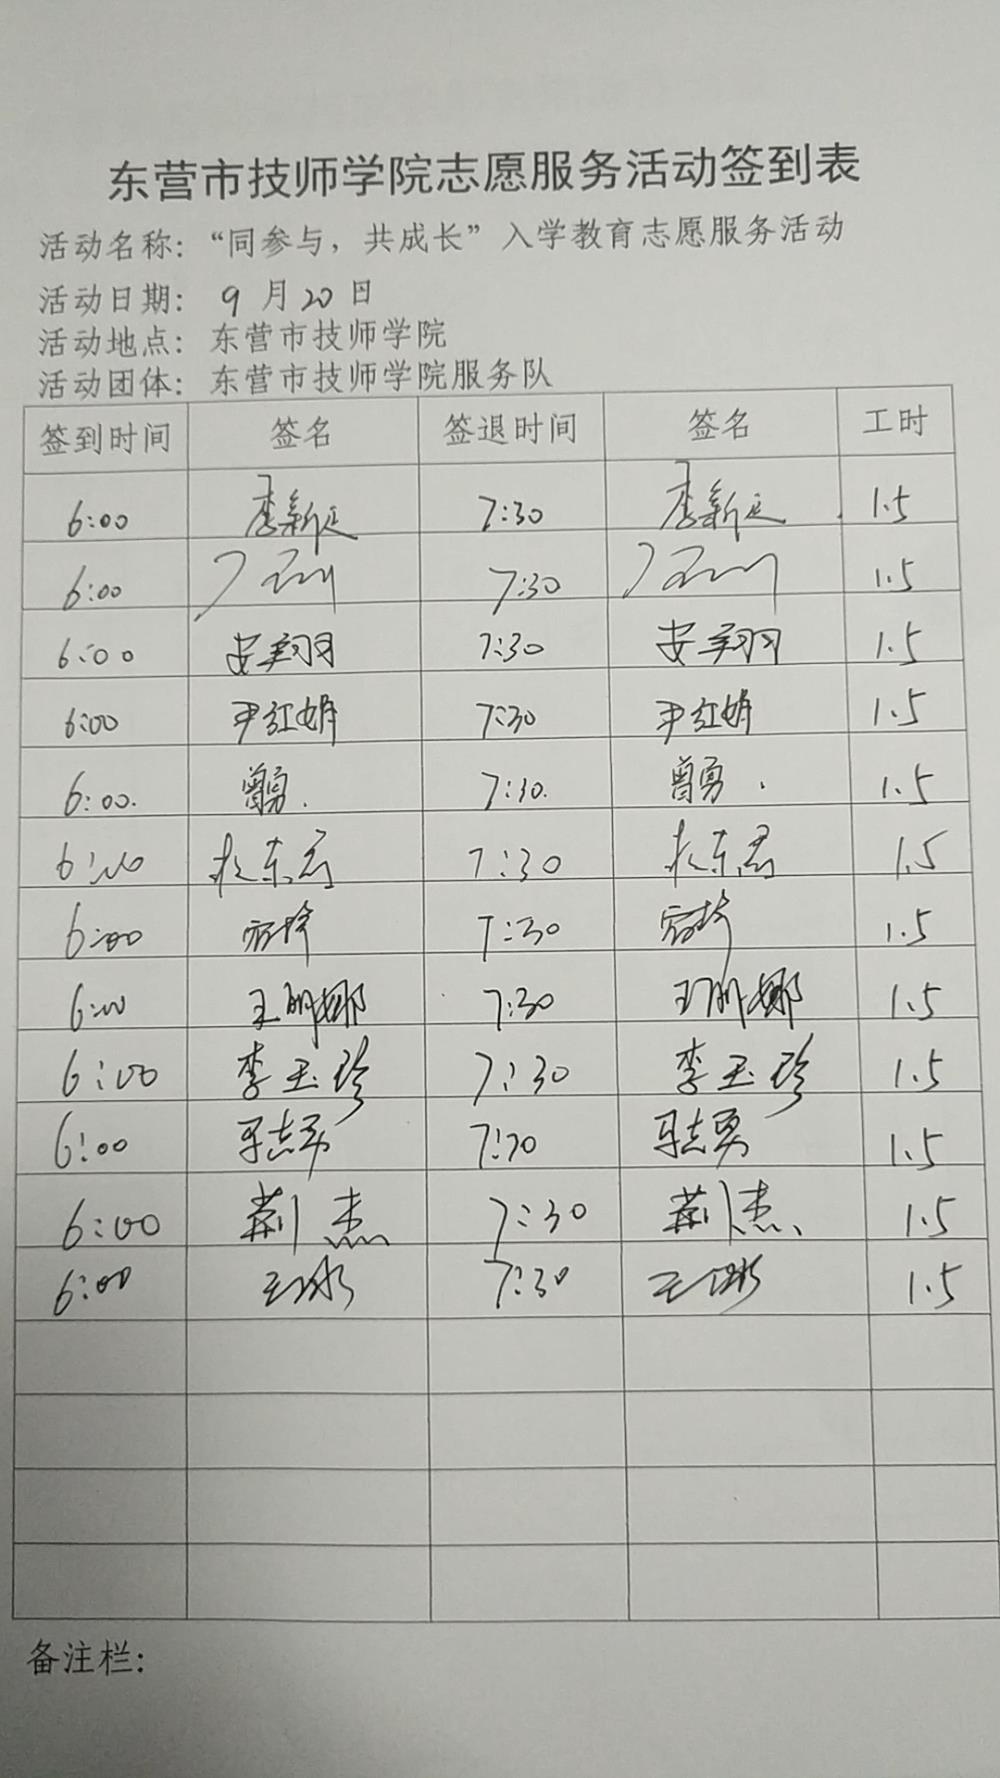 东营市技师学院志愿服务活动签到表
活动名称：“同参与，共成长”入学教育志愿服务活动
活动日期： 9 月 20 日
活动地点： 东营市技师学院
活动团体： 东营市技师学院服务队
签到时间 签名 签退时间 签名 工时
6:00 李新 7:30 李新 1.5
6:00 7:30 1.5
6:00 安翔羽 7:30 安翔羽 1.5
6:00 尹红娟 7:30 尹红娟 1.5
6:00. 曾勇. 7:30. 曾勇. 1.5
6:00 东君 7:30 东君 1.5
6:00 7:30 1.5
6:00 王明娜 7:30 王明娜 1.5
6:00 李玉珍 7:30 李玉珍 1.5
6:00 马志勇 7:30 马志勇 1.5
6:00 荆杰 7:30 荆杰 1.5
6:00 王冰 7:30 王冰 1.5
备注栏：